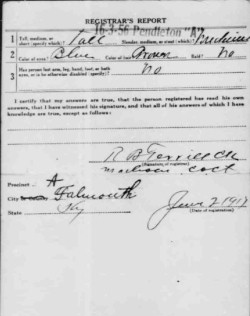 REGISTRAR'S REPORT
16-3-56 Pendleton "A"
1 Tall, medium, or short (specify which)? Tall Slender, medium, or stout (which)?
2 Color of eyes? Blue Color of hair? Brown Bald? No
3 Has person lost arm, leg, hand, foot, or both eyes, or is he otherwise disabled (specify)? No
I certify that my answers are true, that the person registered has read his own answers, that I have witnessed his signature, and that all of his answers of which I have knowledge are true, except as follows:
(Signature of registrar)
Precinct A
City Falmouth
State Ky
June 2 1917
(Date of registration)